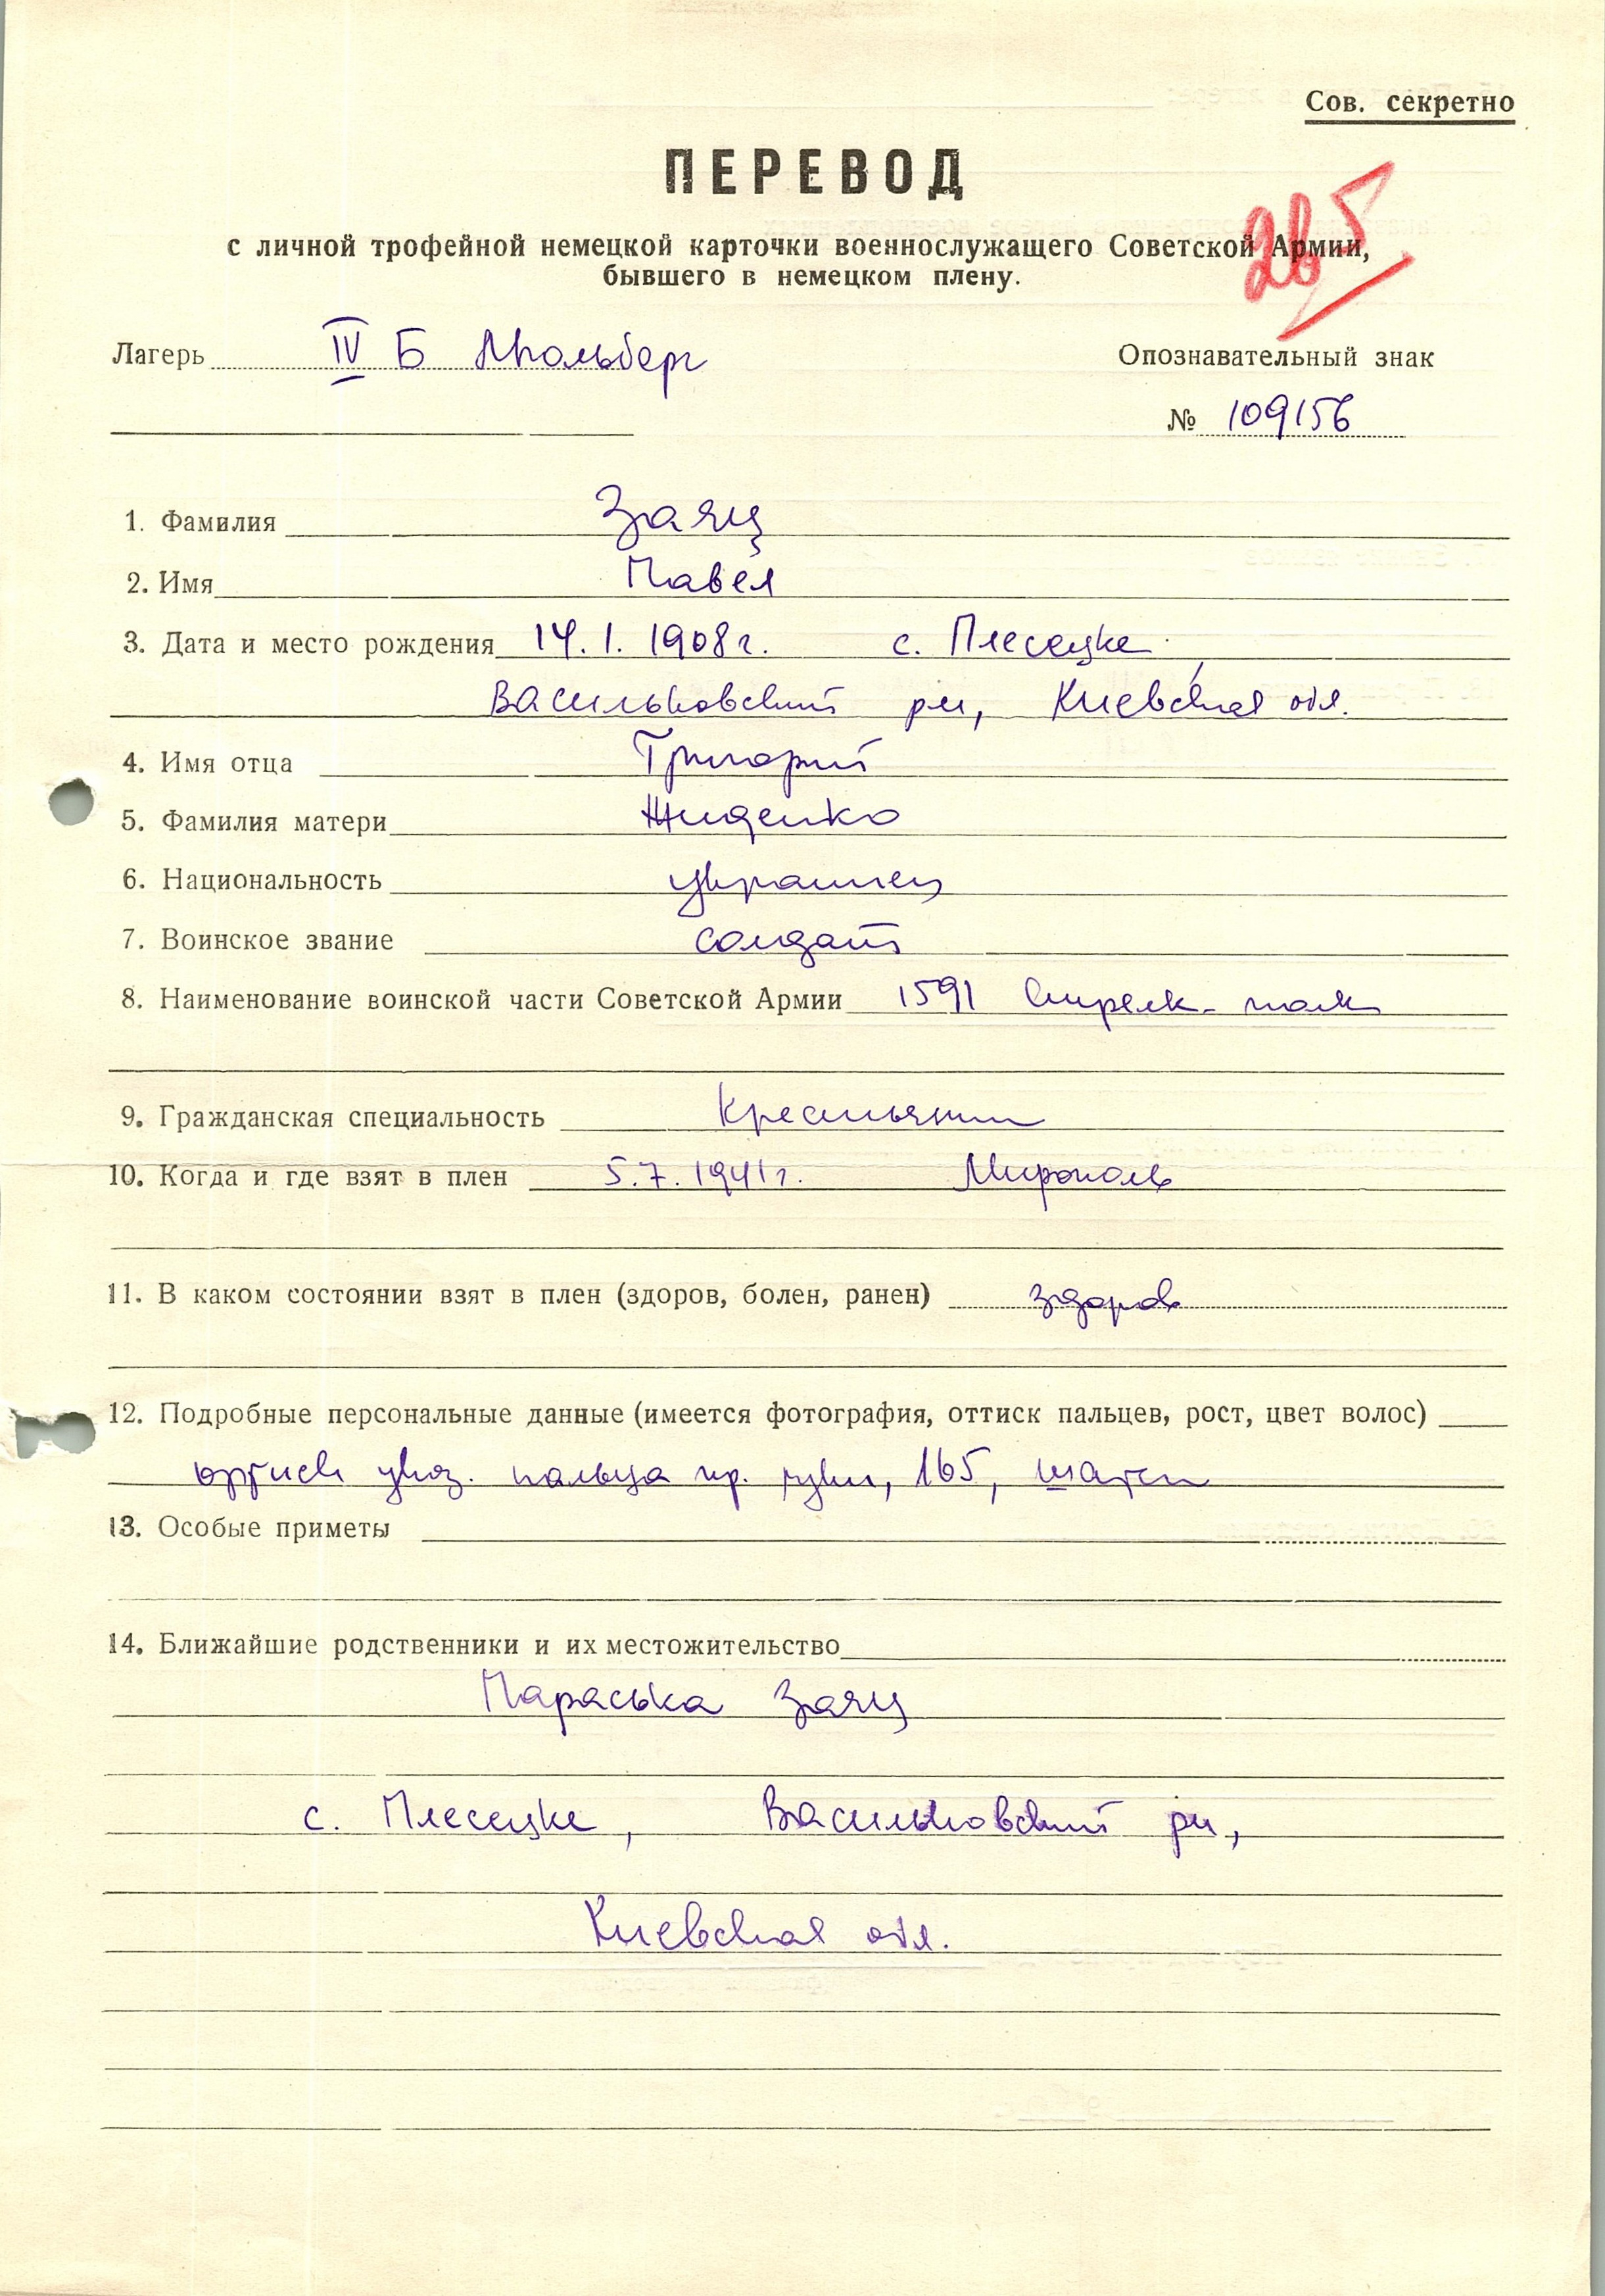 Сов. секретно
ПЕРЕВОД
265
с личной трофейной немецкой карточки военнослужащего Советской Армии,
бывшего в немецком плену.
Лагерь IV Б Мюльберг
Опознавательный знак
№ 109156
1. Фамилия Заяц
2. Имя Павел
3. Дата и место рождения 14.1.1908г. с. Плесецке,
Васильковский рн, Киевская обл.
4. Имя отца Григорий
5. Фамилия матери Жиденко
6. Национальность украинец
7. Воинское звание солдат
8. Наименование воинской части Советской Армии 1591 Стрелк. полк
9. Гражданская специальность Крестьянин
10. Когда и где взят в плен 5.7.1941г. Мирополь
11. В каком состоянии взят в плен (здоров, болен, ранен) здоров
12. Подробные персональные данные (имеется фотография, оттиск пальцев, рост, цвет волос)
оттиск указ. пальца пр. руки, 165, шатен
13. Особые приметы
14. Ближайшие родственники и их местожительство
Параська Заяц
с. Плесецке, Васильковский рн,
Киевская обл.